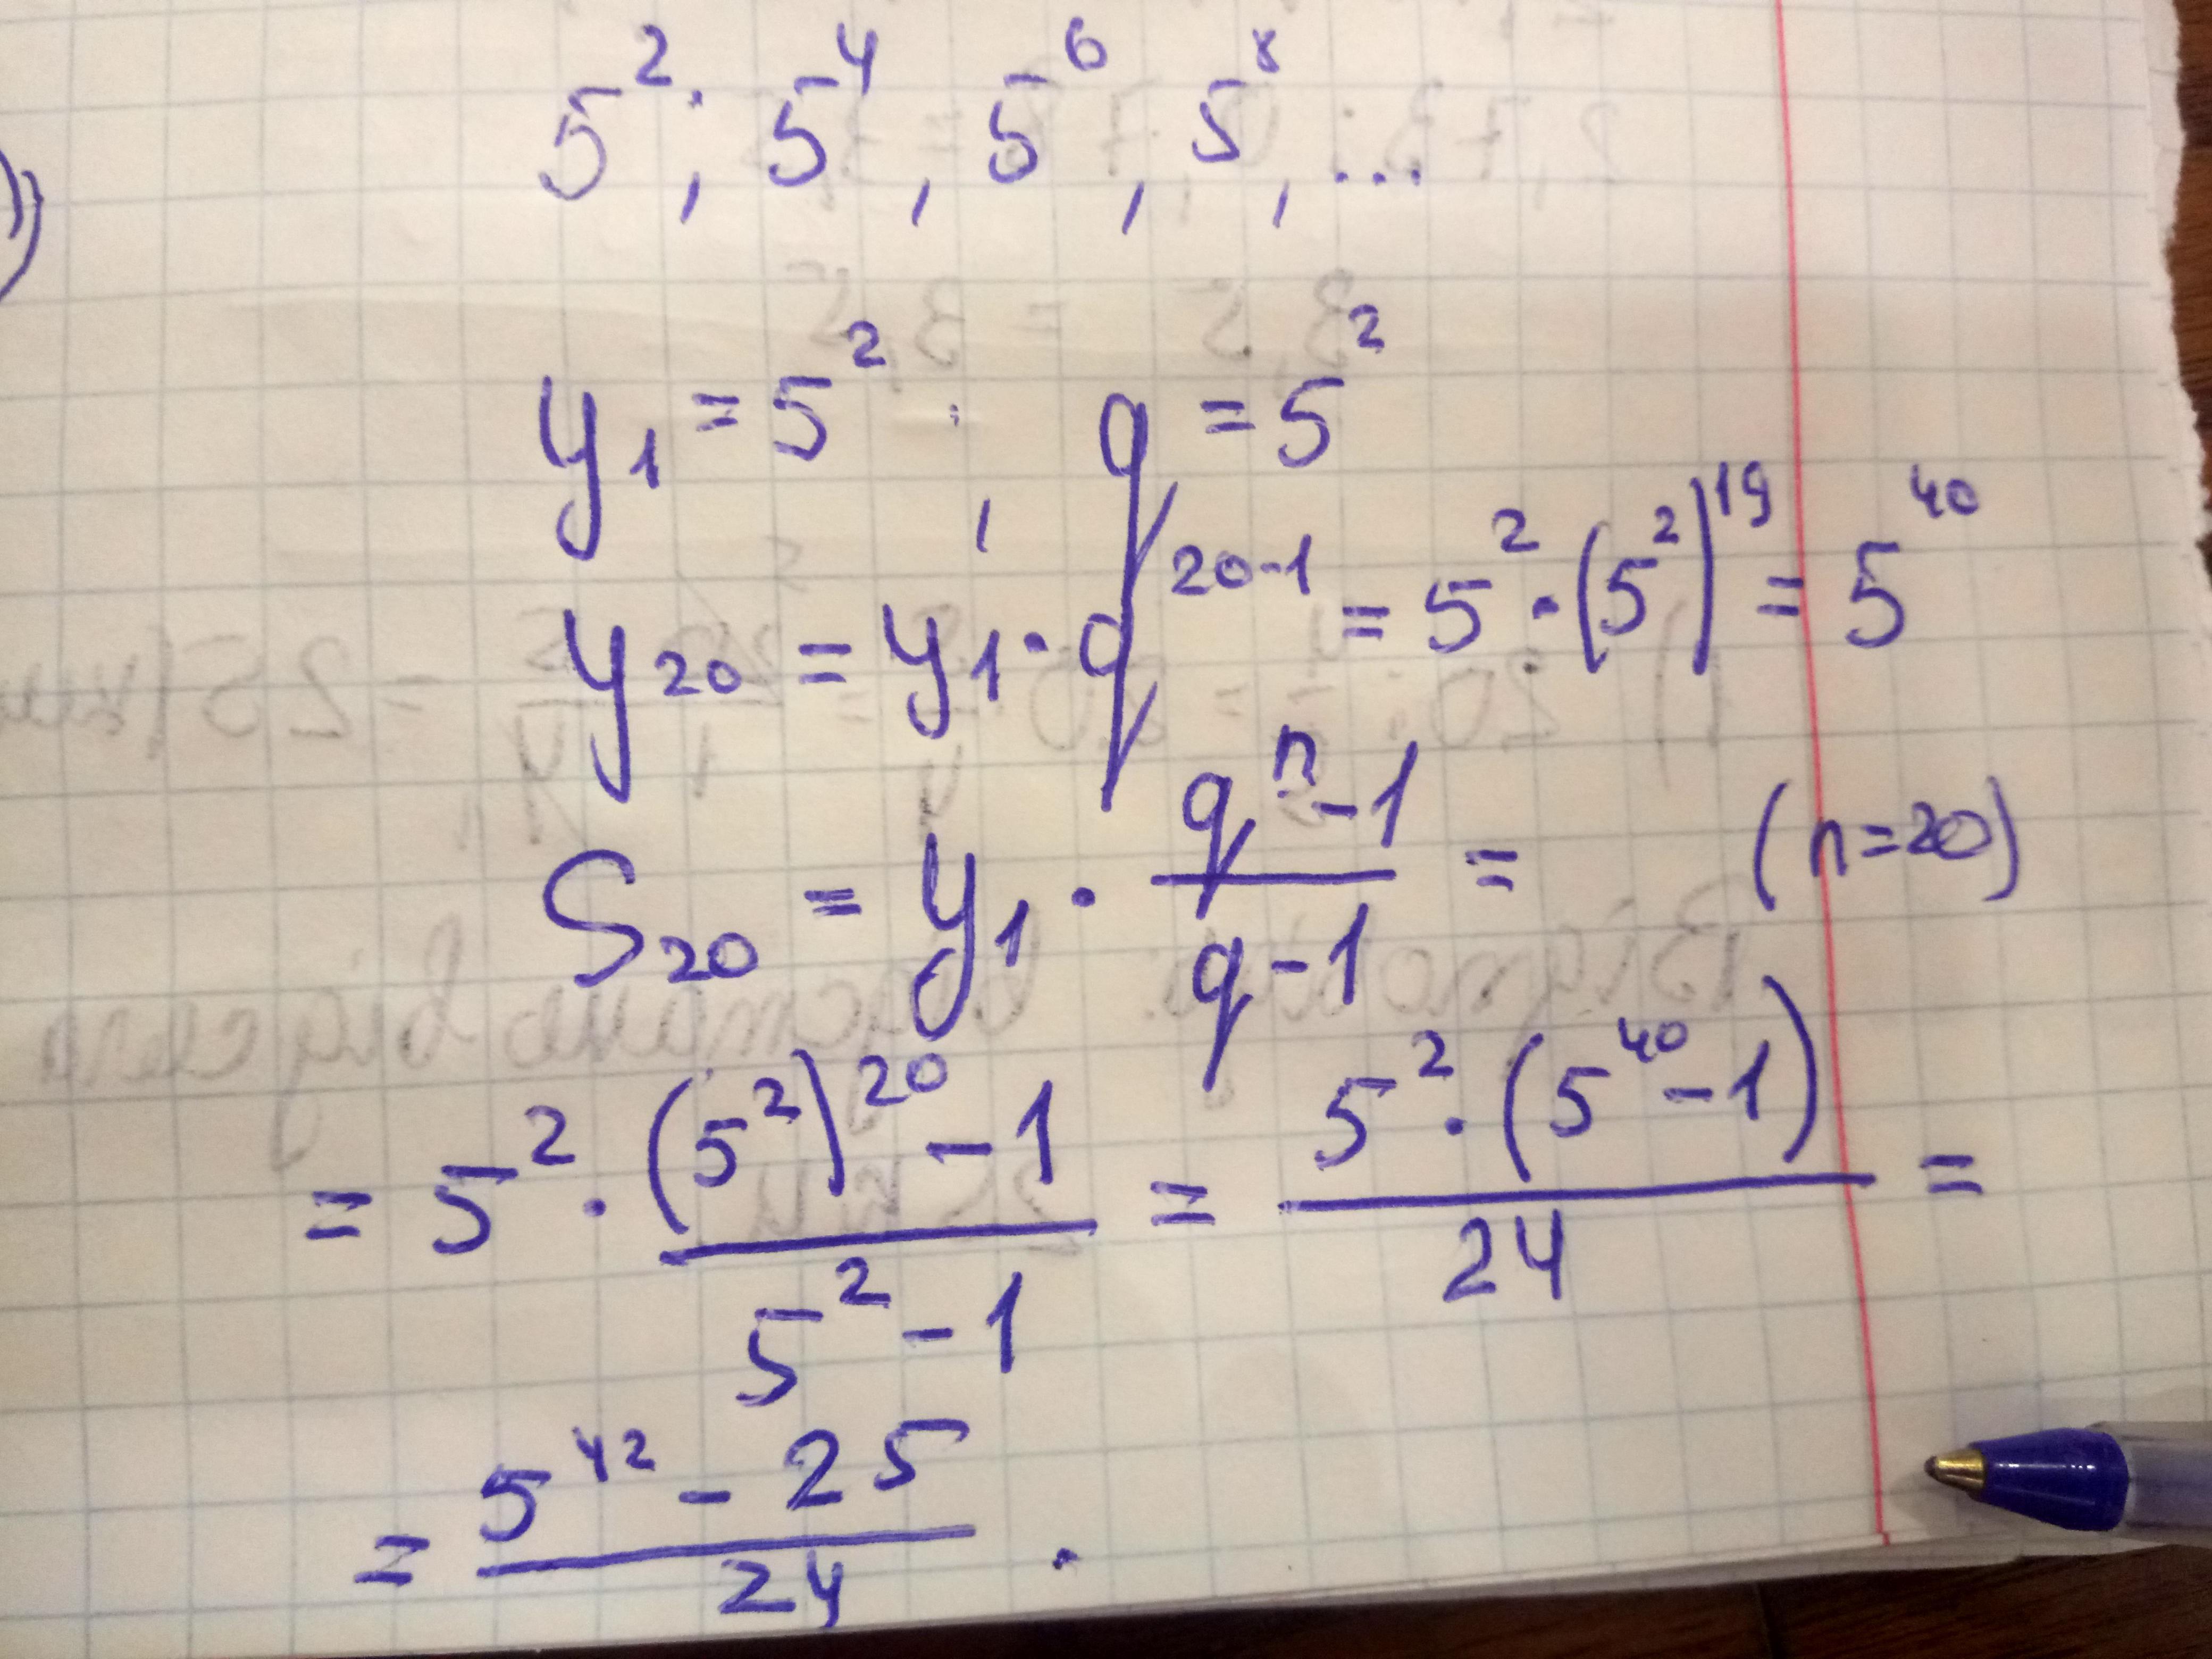 5²; 5⁴, 5⁶, 5⁸, ...
y₁ = 5²; q = 5²
y₂₀ = y₁·q²⁰⁻¹ = 5²·(5²)¹⁹ = 5⁴⁰
S₂₀ = y₁ · (qⁿ-1)/(q-1) = (n=20)
= 5² · ((5²)²⁰ - 1)/(5² - 1) = (5²·(5⁴⁰-1))/24 =
= (5⁴² - 25)/24 .